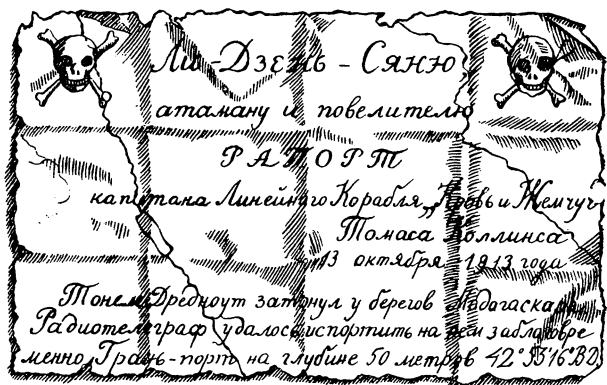 Ли-Дзень-Сяню
атаману и повелителю
РАПОРТ
капитана Линейного Корабля „Кровь и Жемчуг“
Томаса Коллинса
13 октября 1913 года
Тонем Дредноут затонул у берегов Мадагаскара
Радиотелеграф удалось испортить на нем заблаговре
менно Грань-порт на глубине 50 метров 42° 33' 16° В2